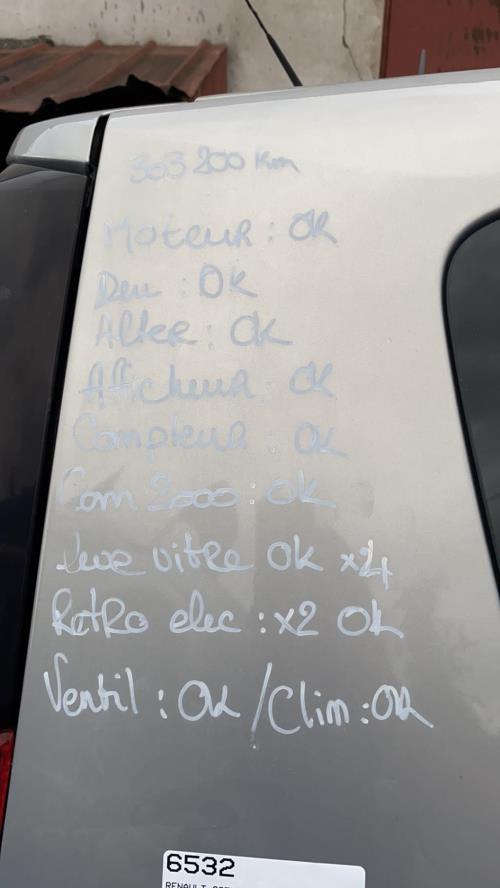 303 200 Km
Moteur : OK
Dem : OK
Alter : OK
Aficheur : OK
Compteur : OK
Com 2000 : OK
Leve vitre OK x4
Retro elec : x2 OK
Ventil : OK / Clim : OK
6532
RENAULT